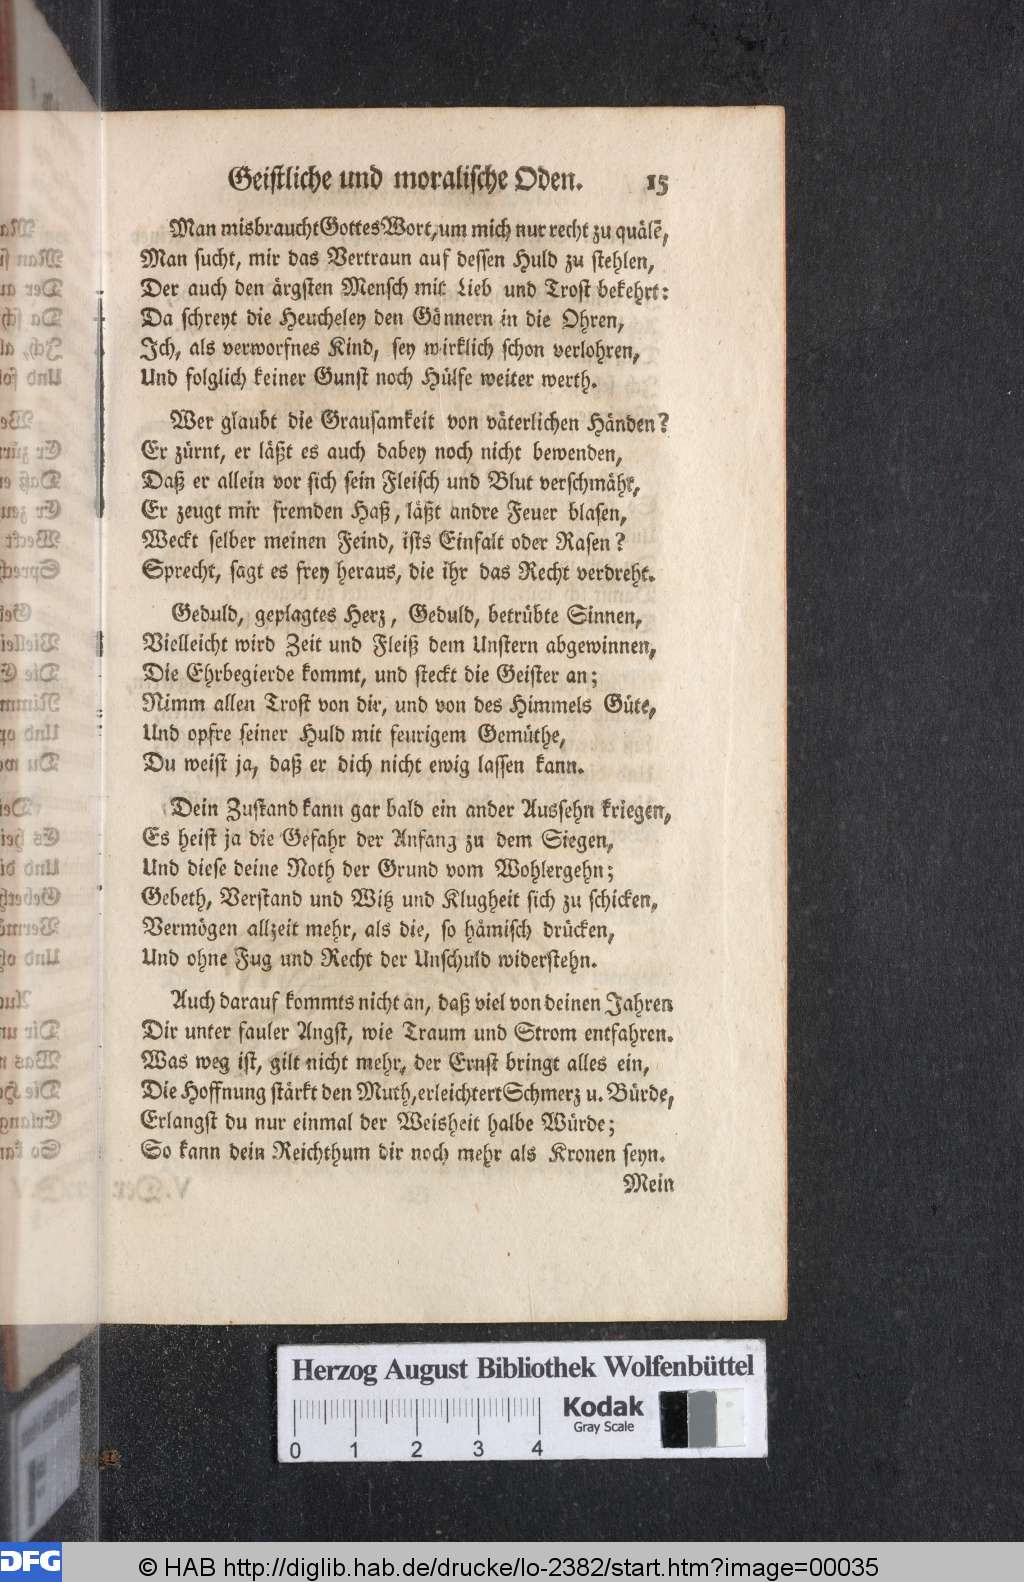 Geistliche und moralische Oden. 15
Man misbraucht Gottes Wort, um mich nur recht zu quälē,
Man sucht, mir das Vertraun auf dessen Huld zu stehlen,
Der auch den ärgsten Mensch mit Lieb und Trost bekehrt:
Da schreyt die Heucheley den Gönnern in die Ohren,
Ich, als verworfnes Kind, sey wirklich schon verlohren,
Und folglich keiner Gunst noch Hülfe weiter werth.
Wer glaubt die Grausamkeit von väterlichen Händen?
Er zürnt, er läßt es auch dabey noch nicht bewenden,
Daß er allein vor sich sein Fleisch und Blut verschmäht,
Er zeugt mir fremden Haß, läßt andre Feuer blasen,
Weckt selber meinen Feind, ists Einfalt oder Rasen?
Sprecht, sagt es frey heraus, die ihr das Recht verdreht.
Geduld, geplagtes Herz, Geduld, betrübte Sinnen,
Vielleicht wird Zeit und Fleiß dem Unstern abgewinnen,
Die Ehrbegierde kommt, und steckt die Geister an;
Nimm allen Trost von dir, und von des Himmels Güte,
Und opfre seiner Huld mit feurigem Gemüthe,
Du weist ja, daß er dich nicht ewig lassen kann.
Dein Zustand kann gar bald ein ander Aussehn kriegen,
Es heist ja die Gefahr der Anfang zu dem Siegen,
Und diese deine Noth der Grund vom Wohlergehn;
Gebeth, Verstand und Witz und Klugheit sich zu schicken,
Vermögen allzeit mehr, als die, so hämisch drücken,
Und ohne Fug und Recht der Unschuld widerstehn.
Auch darauf kommts nicht an, daß viel von deinen Jahren
Dir unter fauler Angst, wie Traum und Strom entfahren.
Was weg ist, gilt nicht mehr, der Ernst bringt alles ein,
Die Hoffnung stärkt den Muth, erleichtert Schmerz u. Bürde,
Erlangst du nur einmal der Weisheit halbe Würde;
So kann dein Reichthum dir noch mehr als Kronen seyn.
Mein
Herzog August Bibliothek Wolfenbüttel
Kodak
Gray Scale
0 1 2 3 4
DFG
© HAB http://diglib.hab.de/drucke/lo-2382/start.htm?image=00035